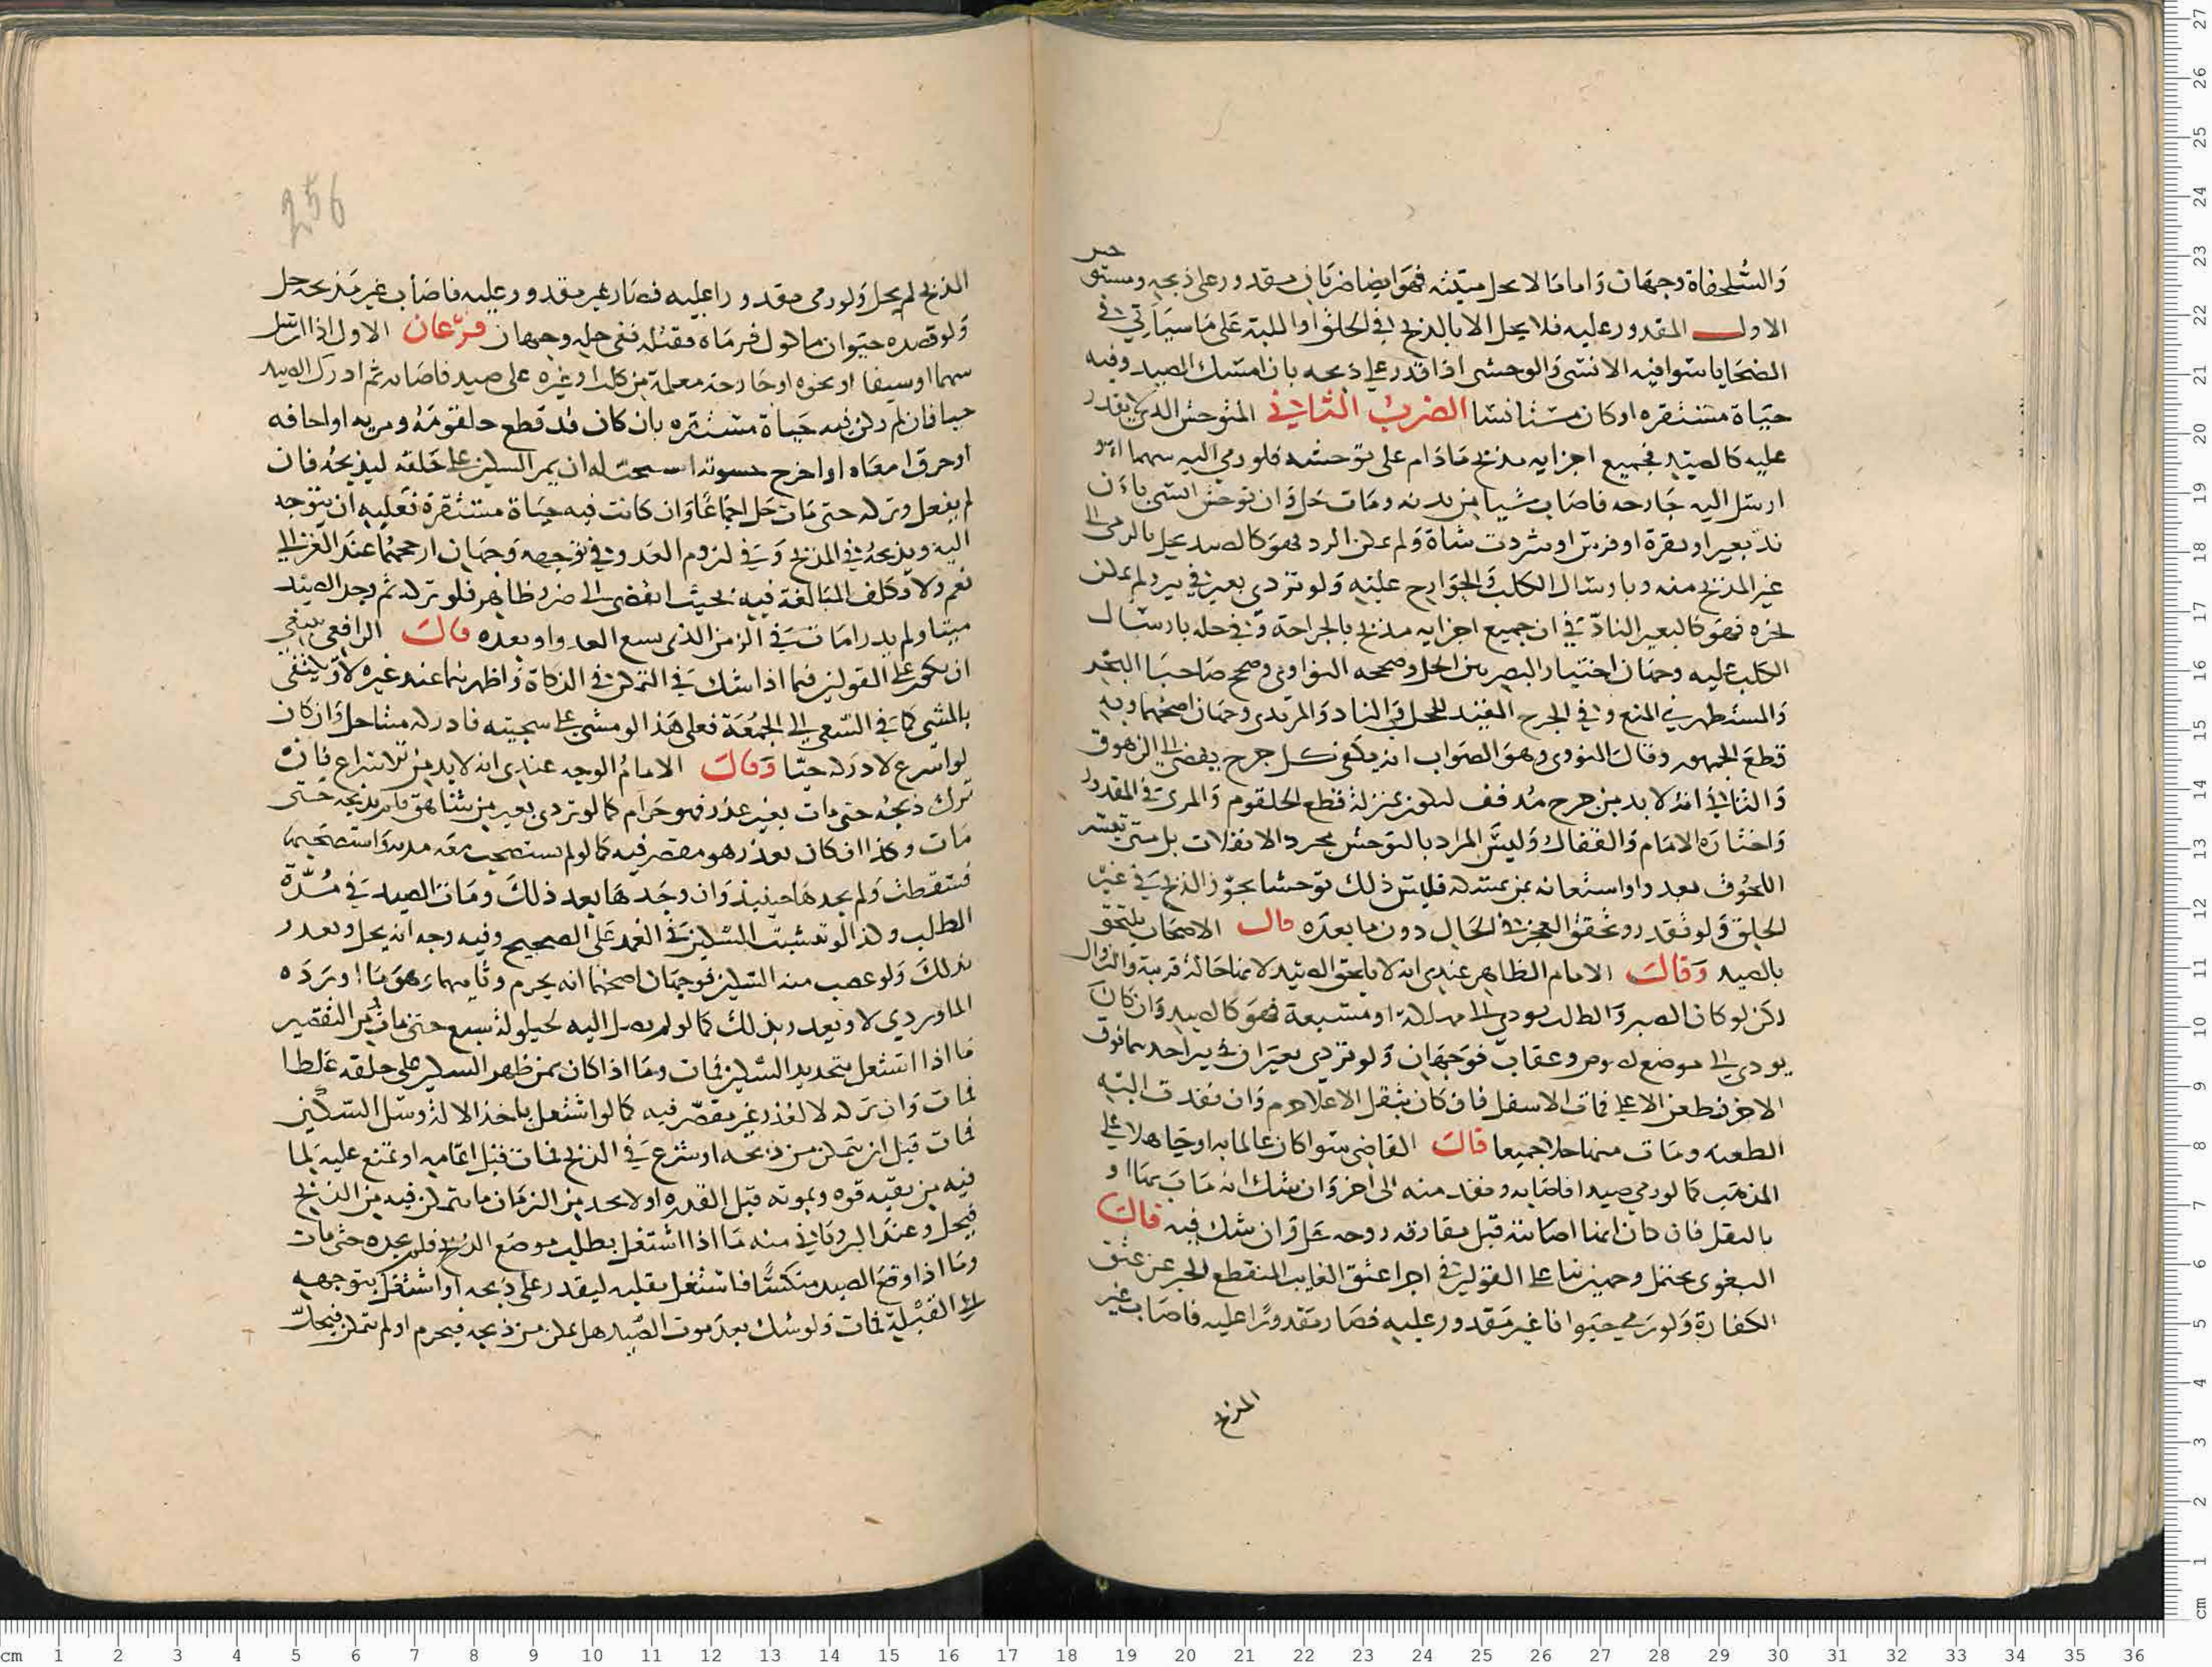 والسلحفاة وجهان واما ما لا يحل ميتته فهو ايضا ضربان مقدور على ذبحه ومستوحش
الاول المقدور عليه فلا يحل الا بالذبح في الحلق او اللبة على ما سياتي في
الضحايا سوا فيه الانسي والوحشي اذا قدر على ذبحه بان امسك الصيد وفيه
حياة مستقره او كان مستانسا الضرب الثاني المتوحش الذي لا يقدر
عليه كالصيد فجميع اجزايه مذبح ما دام على توحشه فلو رمي اليه سهما او
ارسل اليه جارحه فاصاب شيا من بدنه ومات حل وان توحش انسي بان
ند بعير او بقرة او فرس او شردت شاة ولم يمكن الرد فهو كالصيد يحل بالرمي الى
غير المذبح منه وبارسال الكلب والجوارح عليه ولو تردي بعير في بير ولم يمكن
نحره فهو كالبعير الناد في ان جميع اجزايه مذبح بالجراحة وفي حله بارسال
الكلب عليه وجهان اختيار البصريين الحل وصححه النواوي وصحح صاحبا البحر
والمستظهري المنع وفي الجرح المفيد للحل في الناد والمردي وجهان اصحهما وبه
قطع الجمهور وقال النووي وهو الصواب انه يكفي كل جرح يفضي الى الزهوق
والثاني انه لا بد من جرح مدفف ليكون بمنزلة قطع الحلقوم والمري في المقدور
واختاره الامام والقفال وليس المراد بالتوحش مجرد الانفلات بل متى تيسر
اللحوق بعدو او استعانه بمن يمسكه فليس ذلك توحشا يجوز الذبح في غير
الحلق ولو تقدر وتحقق العجز في الحال دون ما بعده قال الاصحاب يلتحق
بالصيد وقال الامام الظاهر عندي انه لا يلحق الصيد لانها حالة قريبة والزوال
لكن لو كان الصبر والطلب يودي الى مهلكة او مسبعة فهو كالصيد وان كان
يودي الى موضع لصوص وعقاب فوجهان ولو تردي بعيران في بير احدهما فوق
الاخر فطعن الاعلى فمات الاسفل فان كان بثقل الاعلا حرم وان نفدت اليه
الطعنه ومات منها حلا جميعا قال القاضي سوا كان عالما به او جاهلا على
المذهب كما لو رمي صيدا فاصابه ونفد منه الى اخر وان شك انه مات بها او
بالثقل فان كان انها اصابته قبل مفارقه روحه حل وان شك فيه قال
البغوي يحتمل وجهين بنا على القولين في اجزا عتق الغايب المنقطع الخبر عن عتق
الكفارة ولو رمي حيوانا غير مقدور عليه فصار مقدورا عليه فاصاب غير
المذبح
256
المذبح لم يحل ولو رمي مقدورا عليه فصار غير مقدور عليه فاصاب غير مذبحه حل
ولو قصده حيوان ماكول فرماه فقتله ففي حله وجهان فرعان الاول اذا ارسل
سهما او سيفا او نحوه او جارحة معلمة من كلب او غيره على صيد فاصابه ثم ادرك الصيد
حيا فان لم يكن فيه حياة مستقره بان كان قد قطع حلقومه ومريه او اجافه
او حرق امعاه او اخرج حشوته استحب له ان يمر السكين على حلقه ليذبحه فان
لم يفعل وتركه حتى مات حل اجماعا وان كانت فيه حياة مستقرة فعليه ان يتوجه
اليه ويذبحه في المذبح وفي لزوم العدو في توجهه وجهان ارجحهما عند الغزالي
نعم ولا يكلف المبالغة فيه بحيث يفضي الى ضرر ظاهر فلو تركه ثم وجد الصيد
ميتا ولم يدر امات في الزمن الذي يسع العدو او بعده قال الرافعي ينبغي
ان يكون على القولين فيما اذا شك في التمكن في الذكاة واظهرهما عند غيره لا ويكتفى
بالمشي كما في السعي الى الجمعة فعلى هذا لو مشي على سجيته فادركه ميتا حل وان كان
لو اسرع لادركه حيا وقال الامام الوجه عندي انه لا بد من الاسراع فان
ترك ذبحه حتى مات بغير عذر فهو حرام كما لو تردي بعير من شاهق فلم يذبحه حتى
مات وكذا ان كان بعذر هو مقصر فيه كما لو لم يستصحب معه مدية او استصحبها
فسقطت ولم يجدها حينيذ وان وجدها بعد ذلك ومات الصيد في مدة
الطلب وكذا لو تشبت السكين في الغمد على الصحيح وفيه وجه انه يحل ويعذر
بذلك ولو غصب منه السكين فوجهان اصحهما انه يحرم وثانيهما وهو ما اورده
الماوردي لا ويعذر بذلك كما لو لم يصل اليه لحيلولة سبع حتى مات ومن التقصير
ما اذا اشتغل بتحديد السكين فمات وما اذا كان يمر ظهر السكين على حلقه غلطا
فمات وان تركه لا لعذر غير مقصر فيه كما لو اشتغل باخذ الالة وسل السكين
فمات قبل ان يتمكن من ذبحه او شرع في الذبح فمات قبل اتمامه او تمنع عليه لما
فيه من بقيه قوه ويموته قبل القدره او لا يجد من الزمان ما يتمكن فيه من الذبح
فيحل وعند الروياني منه ما اذا اشتغل بطلب موضع الذبح فلم يجده حتى مات
وما اذا وقع الصيد منكسا فاشتغل بقلبه ليقدر على ذبحه او اشتغل بتوجهه
الى القبلة فمات ولو شك بعد موت الصيد هل تمكن من ذبحه فيحرم او لم يتمكن فيحل